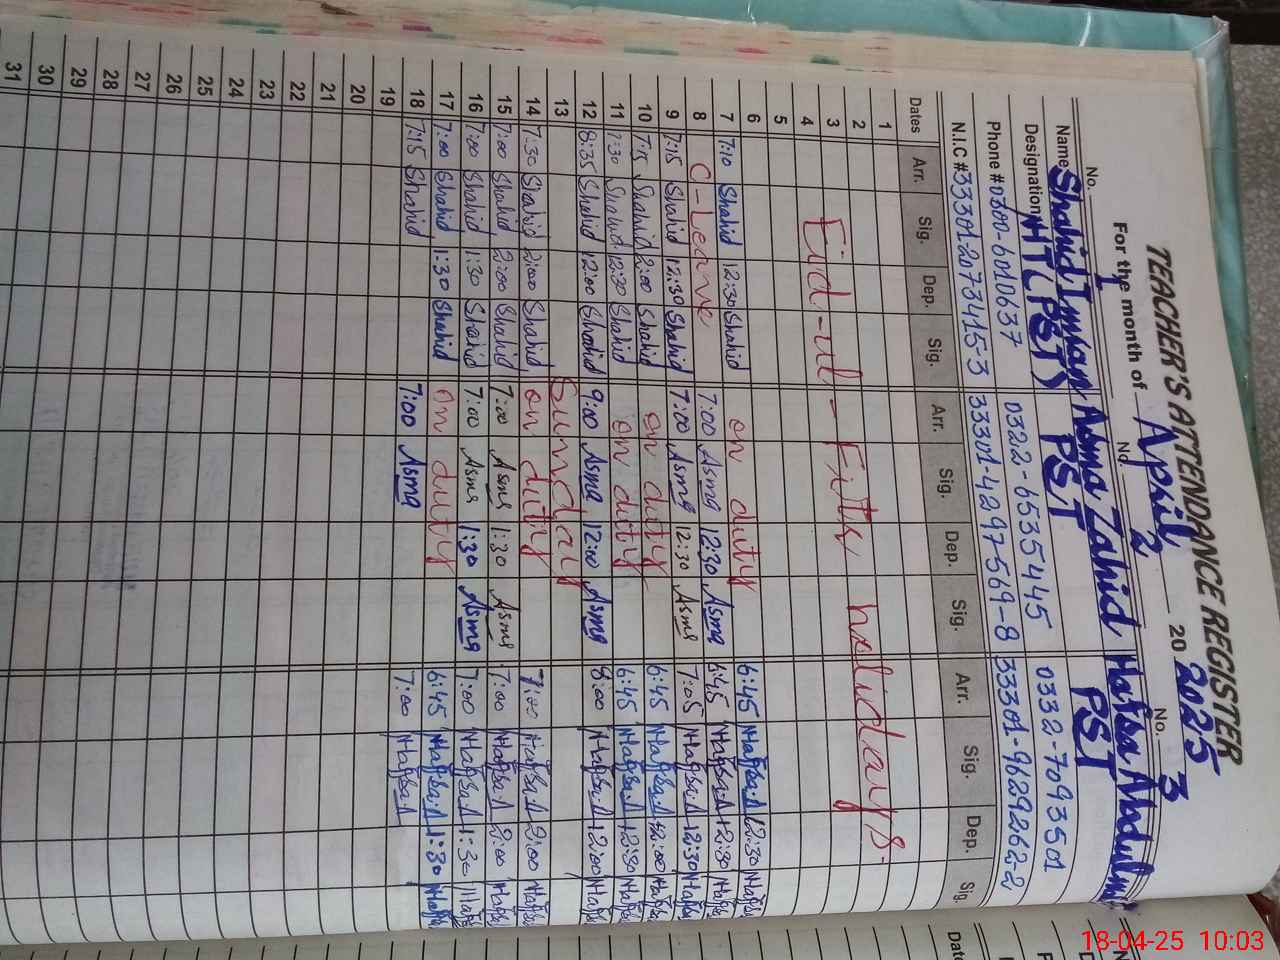 TEACHER'S ATTENDANCE REGISTER
For the month of April 20 2025
No. 1 No. 2 No. 3
Name Shahid Imran Asma Zahid Hafsa Abdul
Designation HT (PST) PST PST
Phone #0300-6010637 0322-6535445 0332-7093501
N.I.C #33301-2073415-3 33301-4297569-8 33301-9629262-2
Dates Arr. Sig. Dep. Sig. Arr. Sig. Dep. Sig. Arr. Sig. Dep. Sig.
1
2
3 Eid-ul-Fitr holidays.
4
5
6 on duty 6:45 Hafsa.A 12:30 Hafsa
7 7:10 Shahid 12:30 Shahid 7:00 Asma 12:30 Asma 6:45 Hafsa.A 12:30 Hafsa
8 C-Leave 7:00 Asma 12:30 Asma 7:05 Hafsa.A 12:30 Hafsa
9 7:15 Shahid 12:30 Shahid on duty 6:45 Hafsa.A 2:00 Hafsa
10 7:15 Shahid 2:00 Shahid on duty 6:45 Hafsa.A 12:30 Hafsa
11 7:30 Shahid 12:30 Shahid 9:00 Asma 12:00 Asma 8:00 Hafsa.A 12:00 Hafsa
12 8:35 Shahid 12:00 Shahid
13 Sunday
14 7:30 Shahid 2:00 Shahid on duty 7:00 Hafsa.A 2:00 Hafsa
15 7:00 Shahid 2:00 Shahid 7:00 Asma 1:30 Asma 7:00 Hafsa.A 2:00 Hafsa
16 7:00 Shahid 1:30 Shahid 7:00 Asma 1:30 Asma 7:00 Hafsa.A 1:30 Hafsa
17 7:00 Shahid 1:30 Shahid on duty 6:45 Hafsa.A 1:30 Hafsa
18 7:15 Shahid 7:00 Asma 7:00 Hafsa.A
19
20
21
22
23
24
25
26
27
28
29
30
31
18-04-25 10:03